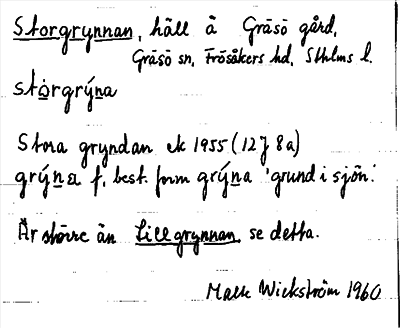 Storgrynnan, häll å Gräsö gård,
Gräsö sn, Frösåkers hd, Sthlms l.
stòrgrýna
Stora gryndan ek 1955 (12J 8a)
grýna f. best. form grýna 'grund i sjön'.
Är större än Lillgrynnan, se detta.
Wickström 1960